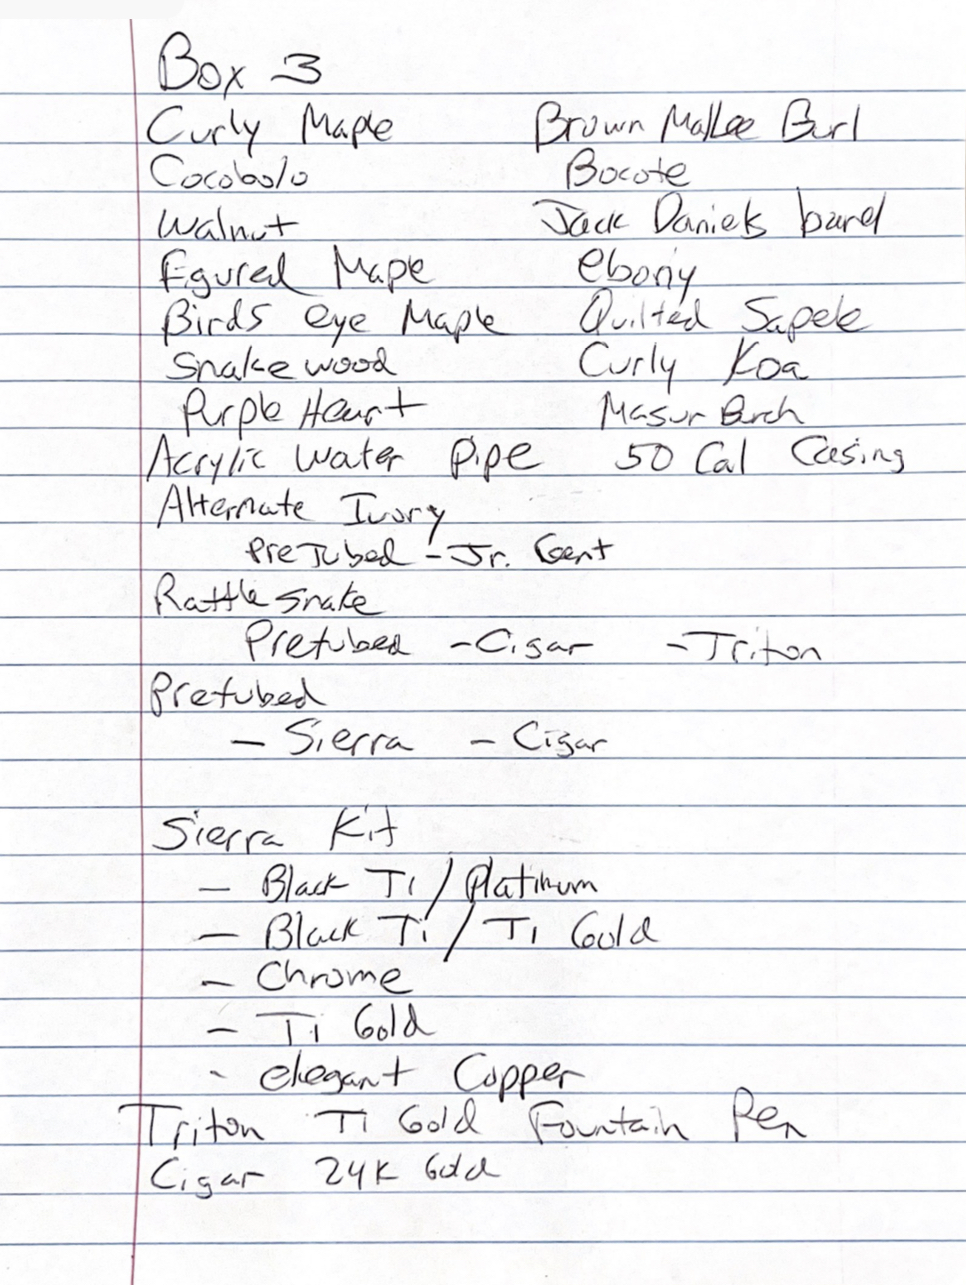 Box 3
Curly Maple Brown Mallee Burl
Cocobolo Bocote
Walnut Jack Daniels barrel
Figured Maple ebony
Birds eye Maple Quilted Sapele
Snake wood Curly Koa
Purple Heart Masur Birch
Acrylic Water Pipe 50 Cal Casing
Alternate Ivory
PreTubed - Jr. Gent
Rattle Snake
Pretubed - Cigar - Triton
Pretubed
- Sierra - Cigar
Sierra Kit
- Black Ti / Platinum
- Black Ti / Ti Gold
- Chrome
- Ti Gold
- elegant Copper
Triton Ti Gold Fountain Pen
Cigar 24K Gold